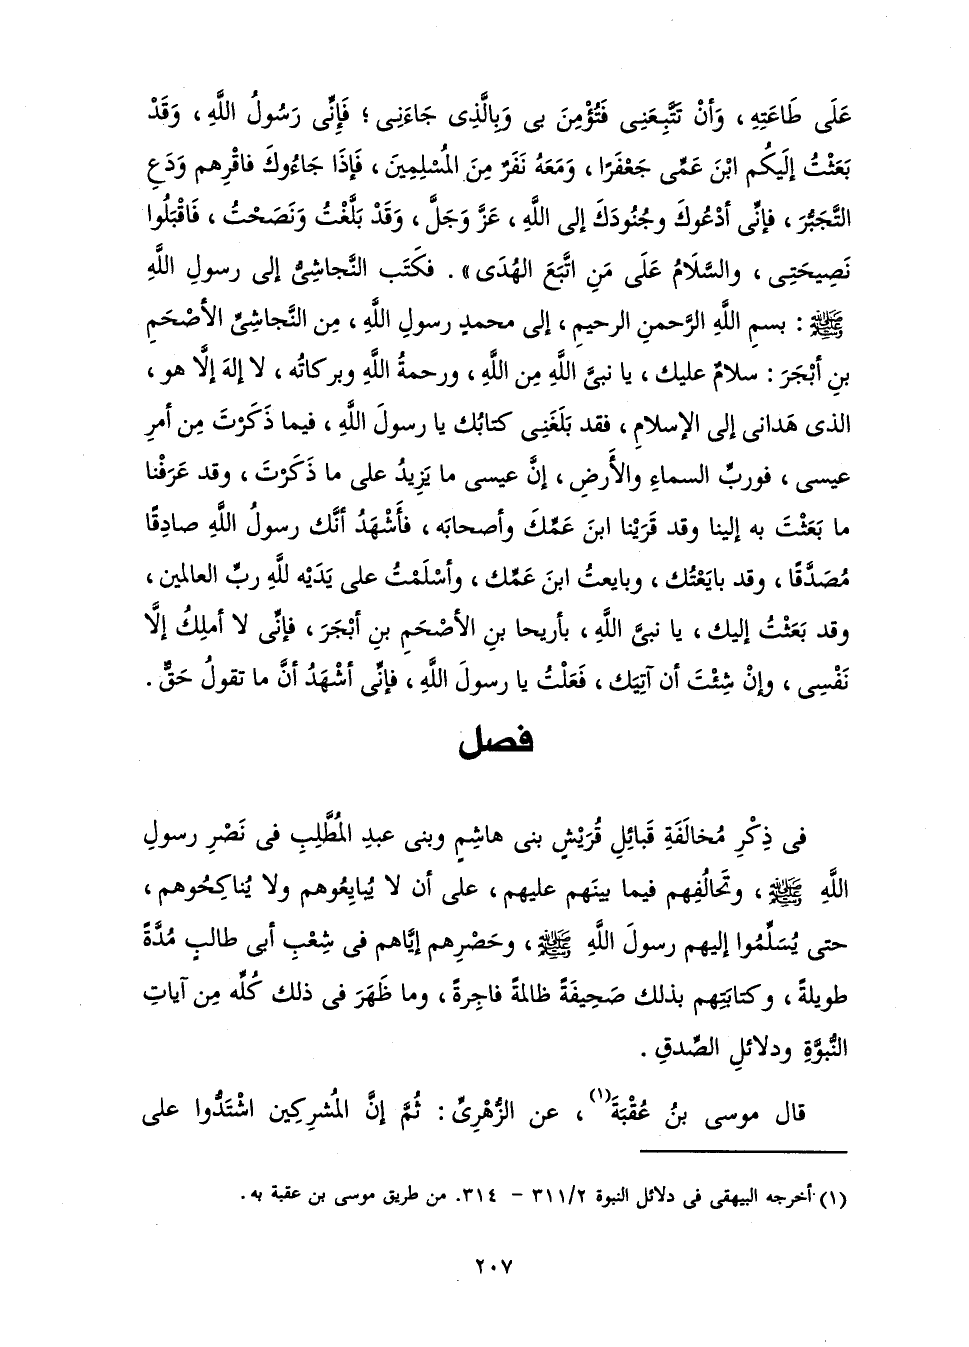 عَلَى طَاعَتِهِ ، وَأنْ تَتَّبِعَنِى فَتُؤْمِنَ بى وَبِالَّذِى جَاءَنِى ؛ فَإِنِّى رَسُولُ اللَّهِ ، وَقَدْ
بَعَثْتُ إلَيكُم ابْنَ عَمِّى جَعْفَرًا ، وَمَعَهُ نَفَرٌ مِنَ المُسْلِمِينَ ، فَإِذَا جَاءُوكَ فاقْرِهم وَدَعِ
التَّجَبُّرَ ، فإنِّى أدْعُوكَ وجُنُودَكَ إلى اللَّهِ ، عَزَّ وَجَلَّ ، وَقَدْ بَلَّغْتُ وَنَصَحْتُ ، فَاقْبَلُوا
نَصِيحَتِى ، والسَّلَامُ عَلَى مَنِ اتَّبَعَ الهُدَى » . فكَتَب النَّجاشِىُّ إلى رسولِ اللَّهِ
ﷺ : بسمِ اللَّهِ الرَّحمنِ الرحيمِ ، إلى محمدٍ رسولِ اللَّهِ ، مِن النَّجاشِىِّ الأصْحَمِ
بنِ أبْجَرَ : سلامٌ عليك ، يا نبىَّ اللَّهِ مِن اللَّهِ ، ورحمةُ اللَّهِ وبركاتُه ، لا إلهَ إلَّا هو ،
الذى هَدانى إلى الإسلامِ ، فقد بَلَغَنِى كتابُك يا رسولَ اللَّهِ ، فيما ذَكَرْتَ مِن أمرِ
عيسى ، فوربِّ السماءِ والأَرضِ ، إنَّ عيسى ما يَزِيدُ على ما ذَكَرْتَ ، وقد عَرَفْنا
ما بَعَثْتَ به إلينا وقد قَرَيْنا ابنَ عَمِّكَ وأصحابَه ، فأَشْهَدُ أنَّك رسولُ اللَّهِ صادِقًا
مُصَدَّقًا ، وقد بايَعْتُك ، وبايعتُ ابنَ عَمِّك ، وأسْلَمْتُ على يَدَيْه للَّهِ ربِّ العالمين ،
وقد بَعَثْتُ إليك ، يا نبىَّ اللَّهِ ، بأريحا بنِ الأصْحَمِ بنِ أبْجَرَ ، فإنِّى لا أملِكُ إلَّا
نَفْسِى ، وإنْ شِئْتَ أن آتِيَك ، فَعَلْتُ يا رسولَ اللَّهِ ، فإنِّى أشْهَدُ أنَّ ما تقولُ حَقٌّ .
فصل
فى ذِكْرِ مُخالَفَةِ قَبائِلِ قُرَيْشٍ بنى هاشِمٍ وبنى عبدِ المُطَّلِبِ فى نَصْرِ رسولِ
اللَّهِ ﷺ ، وتَحَالُفِهم فيما بينَهم عليهم ، على أن لا يُبايِعُوهم ولا يُناكِحُوهم ،
حتى يُسَلِّمُوا إليهم رسولَ اللَّهِ ﷺ ، وحَصْرِهم إيَّاهم فى شِعْبِ أبى طالبٍ مُدَّةً
طويلةً ، وكتابَتِهم بذلك صَحِيفَةً ظالمةً فاجِرةً ، وما ظَهَرَ فى ذلك كُلِّه مِن آياتِ
النُّبوَّةِ ودلائلِ الصِّدقِ .
قال موسى بنُ عُقْبَةَ(١) ، عن الزُّهْرِىِّ : ثُمَّ إنَّ المُشرِكِين اشْتَدُّوا على
(١) أخرجه البيهقى فى دلائل النبوة ٣١١/٢ - ٣١٤. من طريق موسى بن عقبة به .
٢٠٧